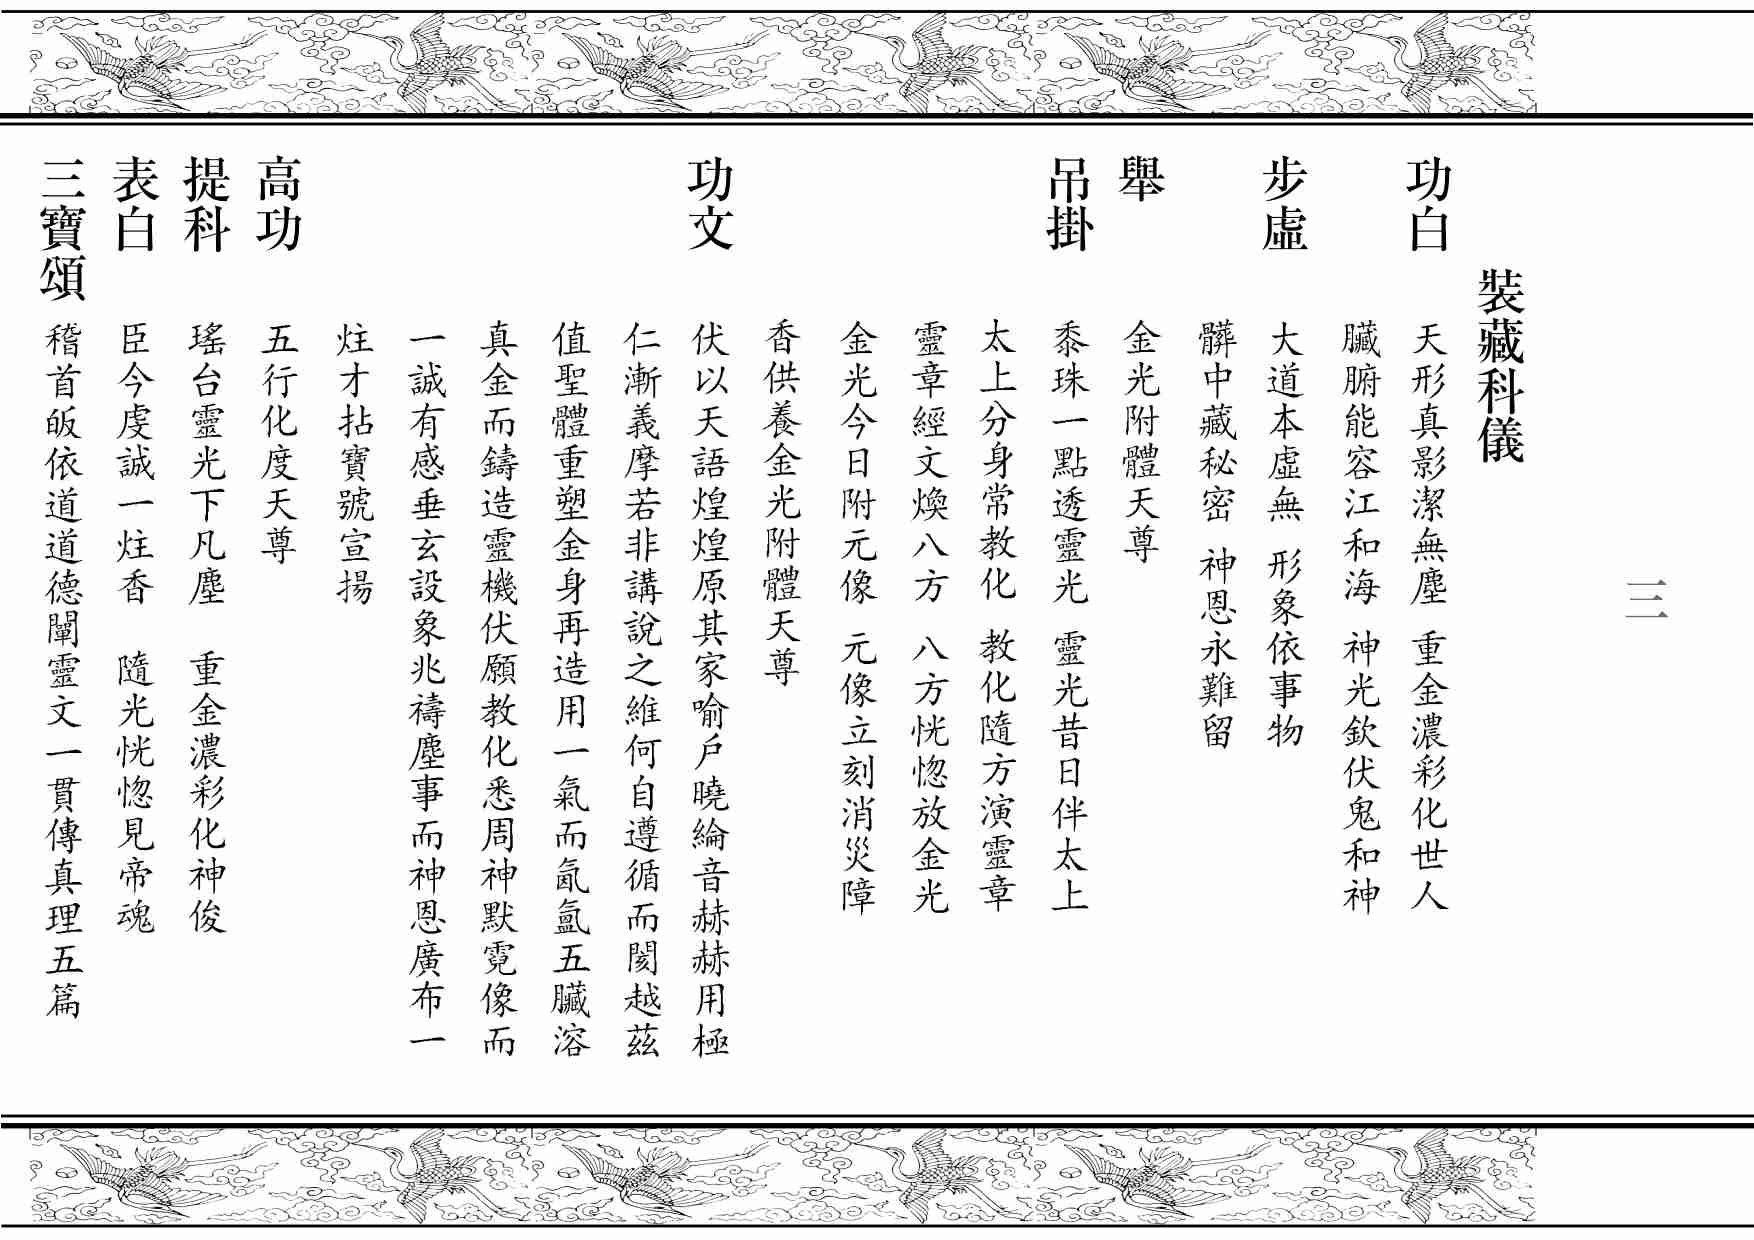 三
裝藏科儀
功白 天形真影潔無塵 重金濃彩化世人
臟腑能容江和海 神光欽伏鬼和神
步虛 大道本虛無 形象依事物
髒中藏秘密 神恩永難留
舉 金光附體天尊
吊掛 黍珠一點透靈光 靈光昔日伴太上
太上分身常教化 教化隨方演靈章
靈章經文煥八方 八方恍惚放金光
金光今日附元像 元像立刻消災障
香供養金光附體天尊
功文 伏以天語煌煌原其家喻戶曉綸音赫赫用極
仁漸義摩若非講說之維何自遵循而閡越茲
值聖體重塑金身再造用一氣而氤氳五臟溶
真金而鑄造靈機伏願教化悉周神默霓像而
一誠有感垂玄設象兆禱塵事而神恩廣布一
炷才拈寶號宣揚
高功 五行化度天尊
提科 瑤台靈光下凡塵 重金濃彩化神俊
表白 臣今虔誠一炷香 隨光恍惚見帝魂
三寶頌 稽首皈依道道德闡靈文一貫傳真理五篇